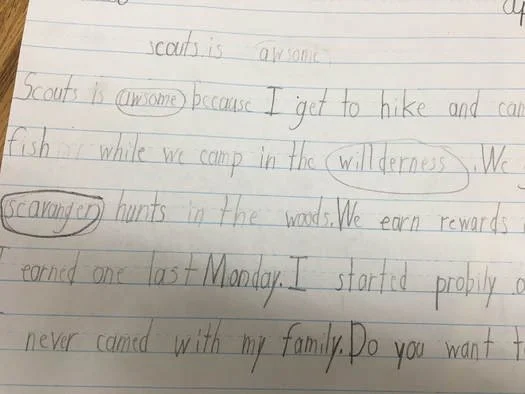 scouts is awsome
Scouts is awsome because I get to hike and can
fish while we camp in the willderness. We
scavanger hunts in the woods. We earn rewards
I earned one last Monday. I started probily
never camed with my family. Do you want t